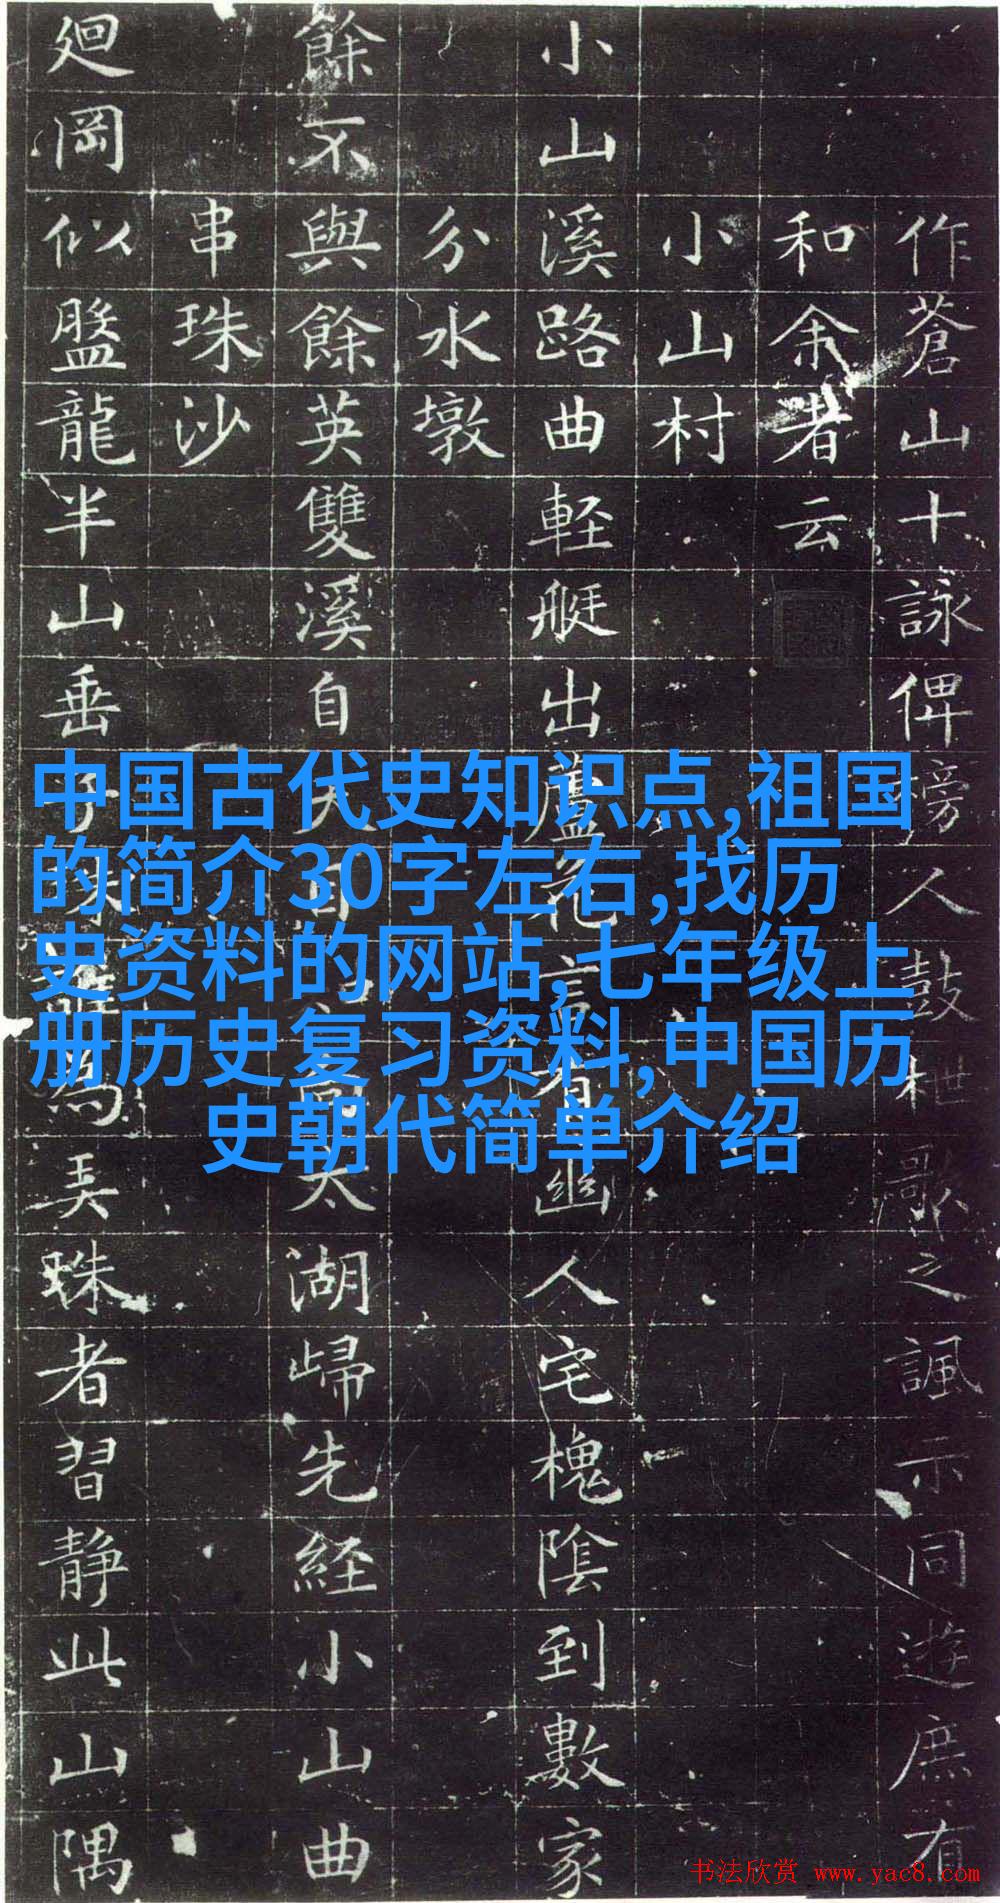 作蒼山十詠俾榜人鼓枻歌之諷示同遊庶有
和余者云
小山村
小山溪路曲軽艇出蘆花言有幽人宅槐陰到數家
分水墩
餘不與餘英雙溪自太湖歸先経小山曲
串珠沙
廻岡似盤龍半山垂為弄珠者習静此山隅
中国古代史知识点,祖国
的简介30字左右,找历
史资料的网站,七年级上
册历史复习资料,中国历
史朝代简单介绍
书法欣赏 www.yac8.com